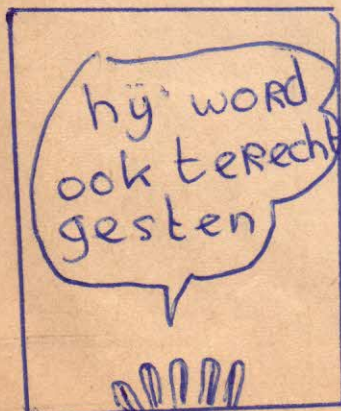 hij word
ook terecht
gesten